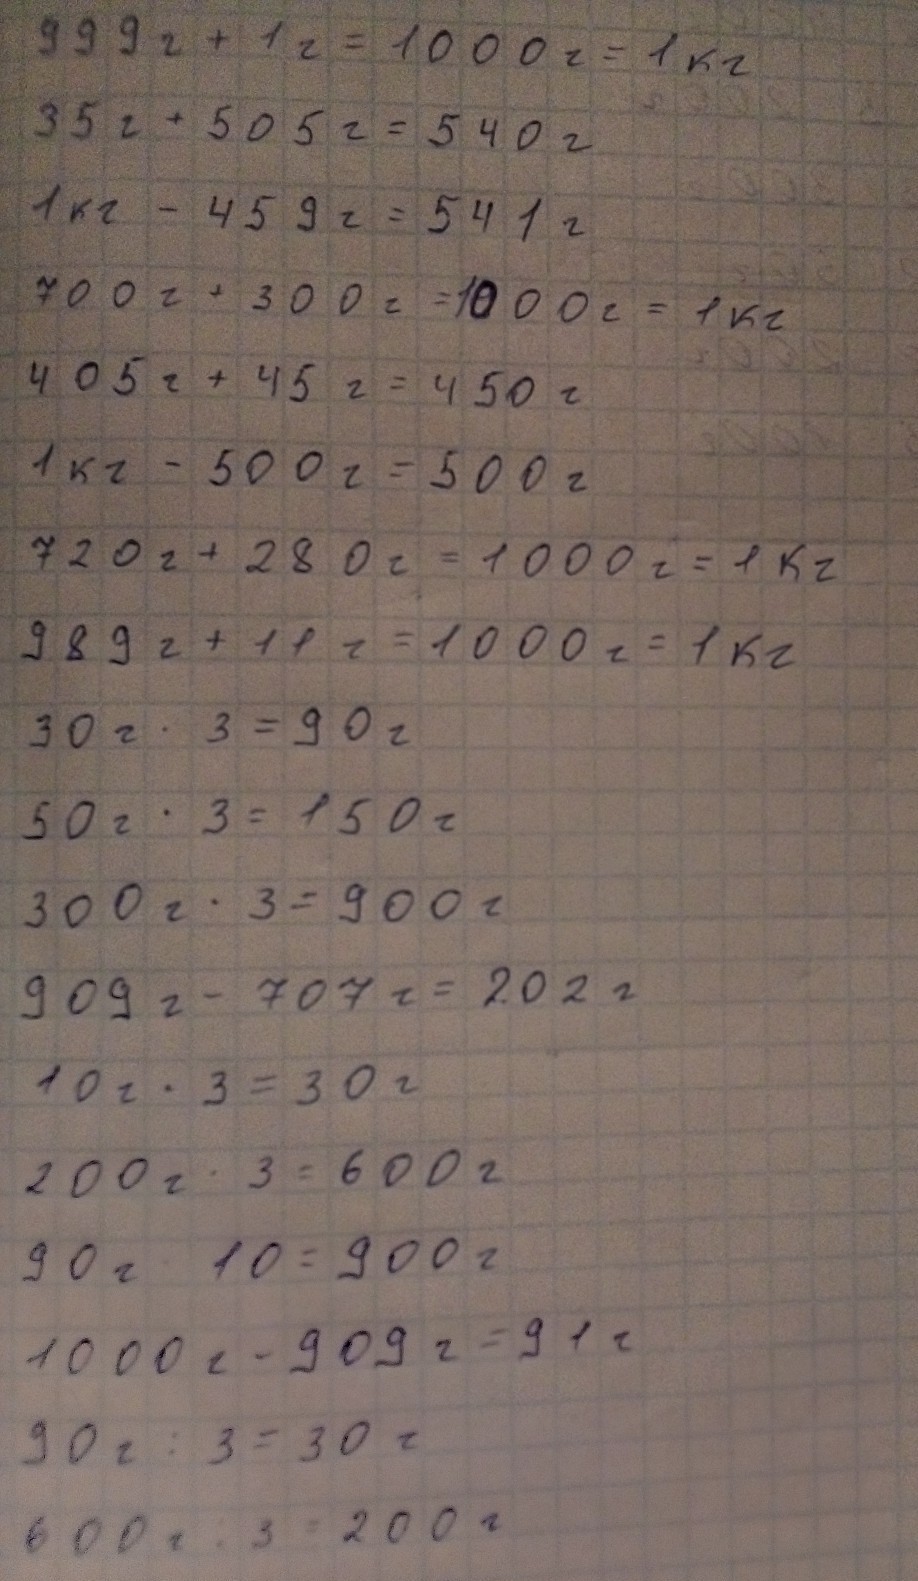 999г + 1г = 1000г = 1кг
35г + 505г = 540г
1кг - 459г = 541г
700г + 300г = 1000г = 1кг
405г + 45г = 450г
1кг - 500г = 500г
720г + 280г = 1000г = 1кг
989г + 11г = 1000г = 1кг
30г · 3 = 90г
50г · 3 = 150г
300г · 3 = 900г
909г - 707г = 202г
10г · 3 = 30г
200г · 3 = 600г
90г · 10 = 900г
1000г - 909г = 91г
90г : 3 = 30г
600г : 3 = 200г